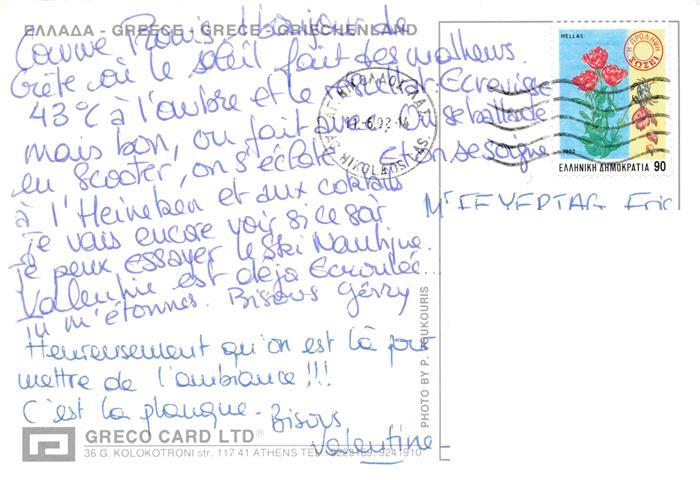 ΕΛΛΑΔΑ - GREECE - GRECE - GRIECHENLAND
Comme Promis, bonjour de
Crète où le soleil fait des malheurs.
43°C à l'ombre et le reste est Ecrevisse
mais bon, on fait avec. On se ballade
en Scooter, on s'éclate Et on se soigne
à l'Heineken et aux cocktails
je vais encore voir si ce soir
je peux essayer le Ski Nautique.
Valentine est déjà Ecroulée...
tu m'étonnes. Bisous Gerry
Heureusement qu'on est là pour
mettre de l'ambiance !!!
C'est la planque - Bisous
Valentine -
GRECO CARD LTD®
36 G. KOLOKOTRONI str. 117 41 ATHENS TEL. 9228169-9241910
PHOTO BY P. VOUKOURIS
ΑΓ. ΝΙΚΟΛΑΟΣ ΛΑΣ.
11-6.92-14
AG. NIKOLAOS LAS.
HELLAS
Η ΠΡΟΛΗΨΗ ΣΩΖΕΙ
1992
ΕΛΛΗΝΙΚΗ ΔΗΜΟΚΡΑΤΙΑ 90
Mr FEYERTAG Eric